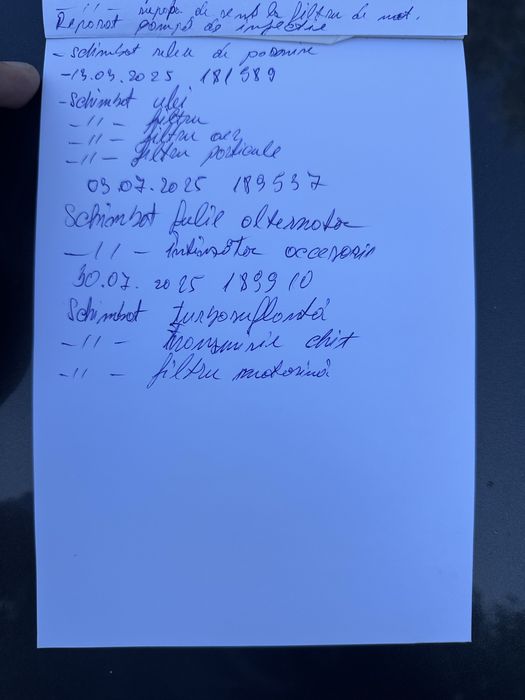 -"- supapa de sens la filtru de mot.
Reparat pompă de injectie
- Schimbat releu de pornire
-13.03.2025 181989
- Schimbat ulei
-"- filtru
-"- filtru aer
-"- filtru particule
03.07.2025 189537
Schimbat fulie alternator
-"- întinzător accesorii
30.07.2025 189910
Schimbat Turbosuflantă
-"- transmisie chit
-"- filtru motorină